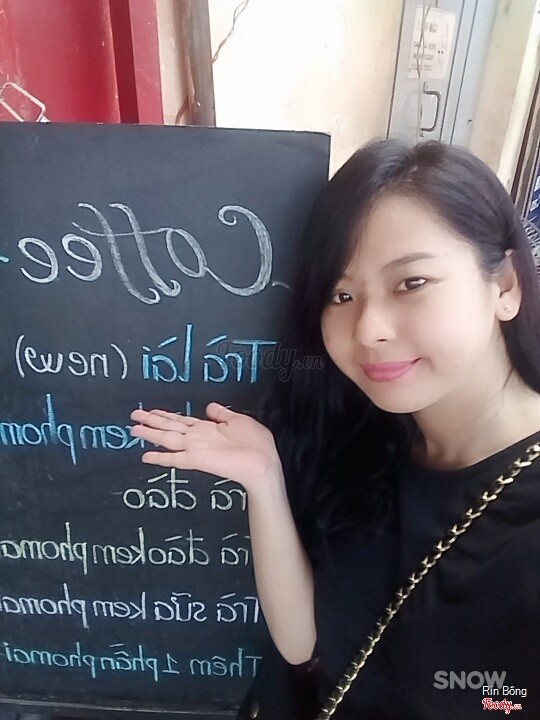 Coffee
Trà lài (news)
kem phom
Trà đào
Trà đào kem phomai
Trà sữa kem phomai
Thêm 1 phần phomai
Foody.vn
SNOW
Rin Bông
Foody.vn